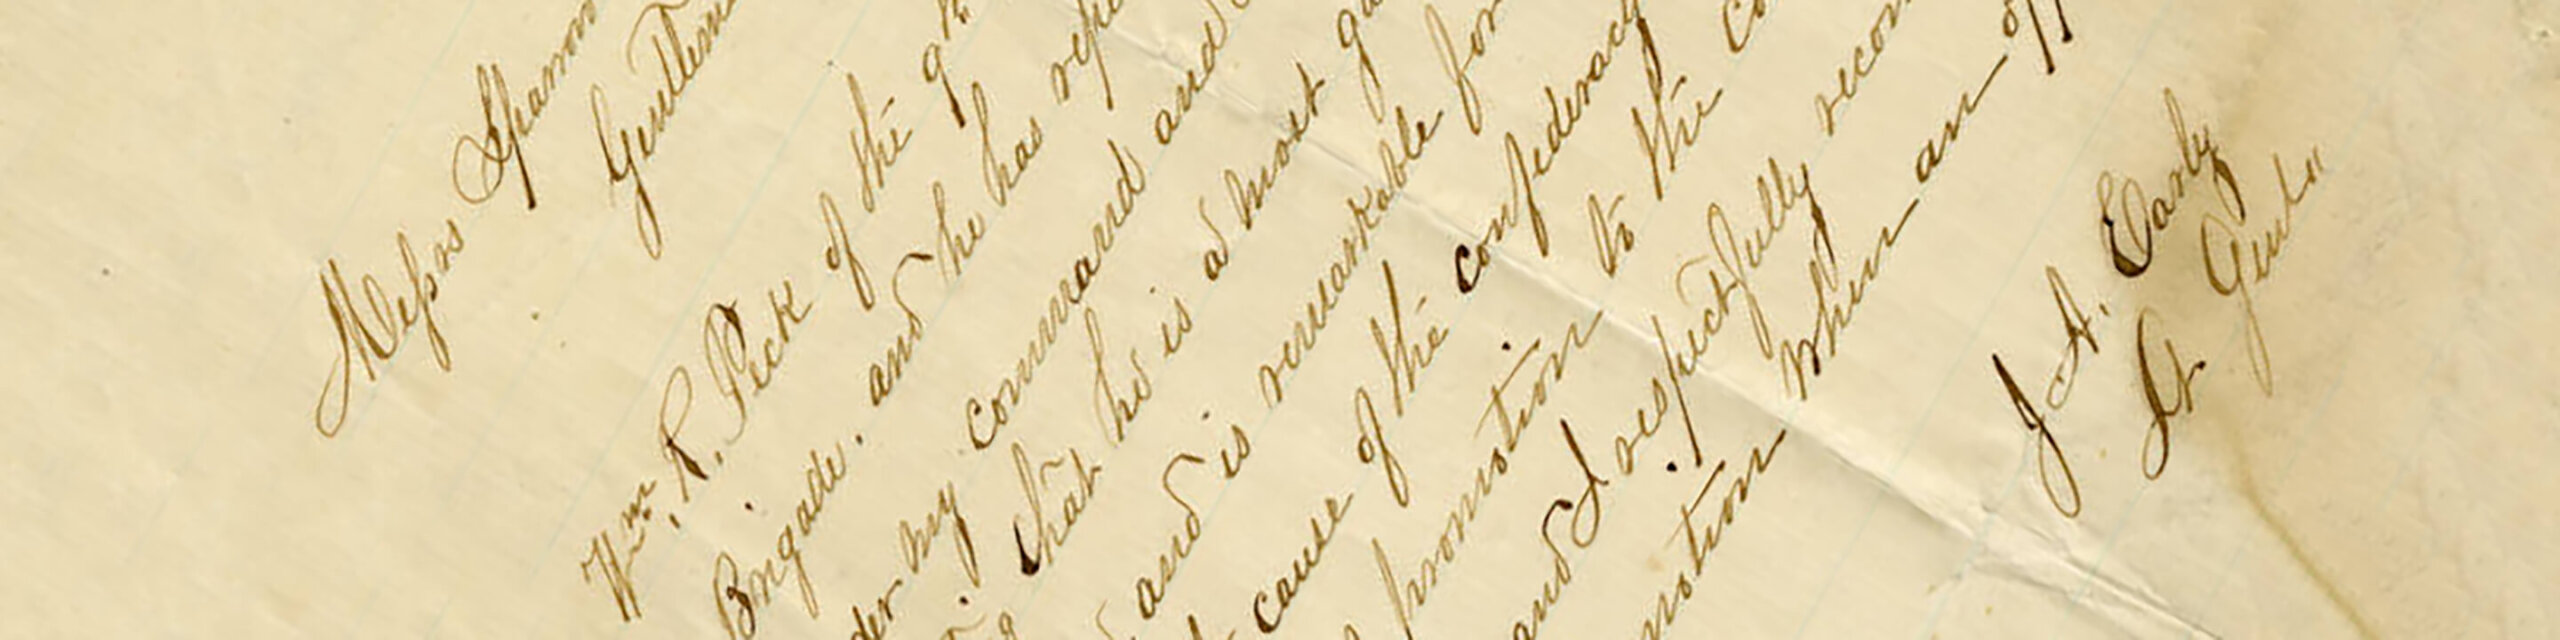 Messrs
Gentlem
Wm. R. Peck of the 9th
Brigade. and he has repe
der my command and
that he is a most ga
and is remarkable for
cause of the confederacy
promotion to the co
and I respectfully recom
motion when an opp
J. A. Early
Lt Genl